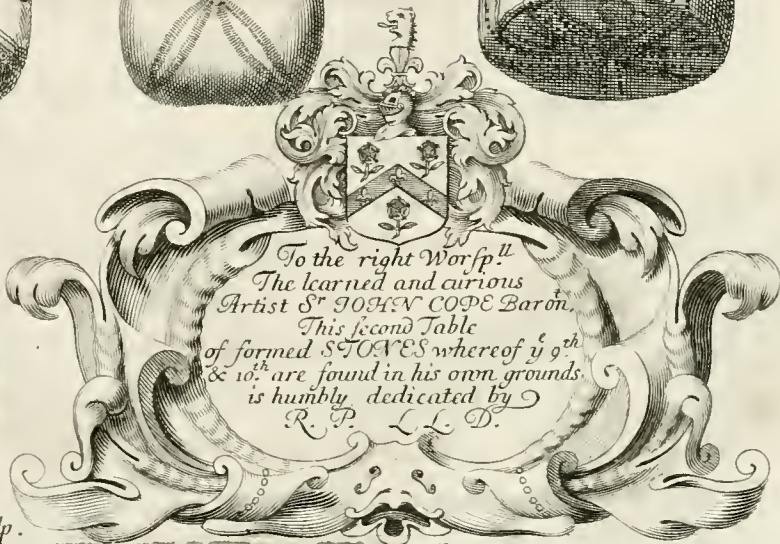 To the right Worſp.ll
The learned and curious
Artiſt Sr JOHN COPE Baront.
This ſecond Table
of formed STONES whereof ye 9.th
& 10.th are found in his own grounds
is humbly dedicated by
R. P. L L. D.